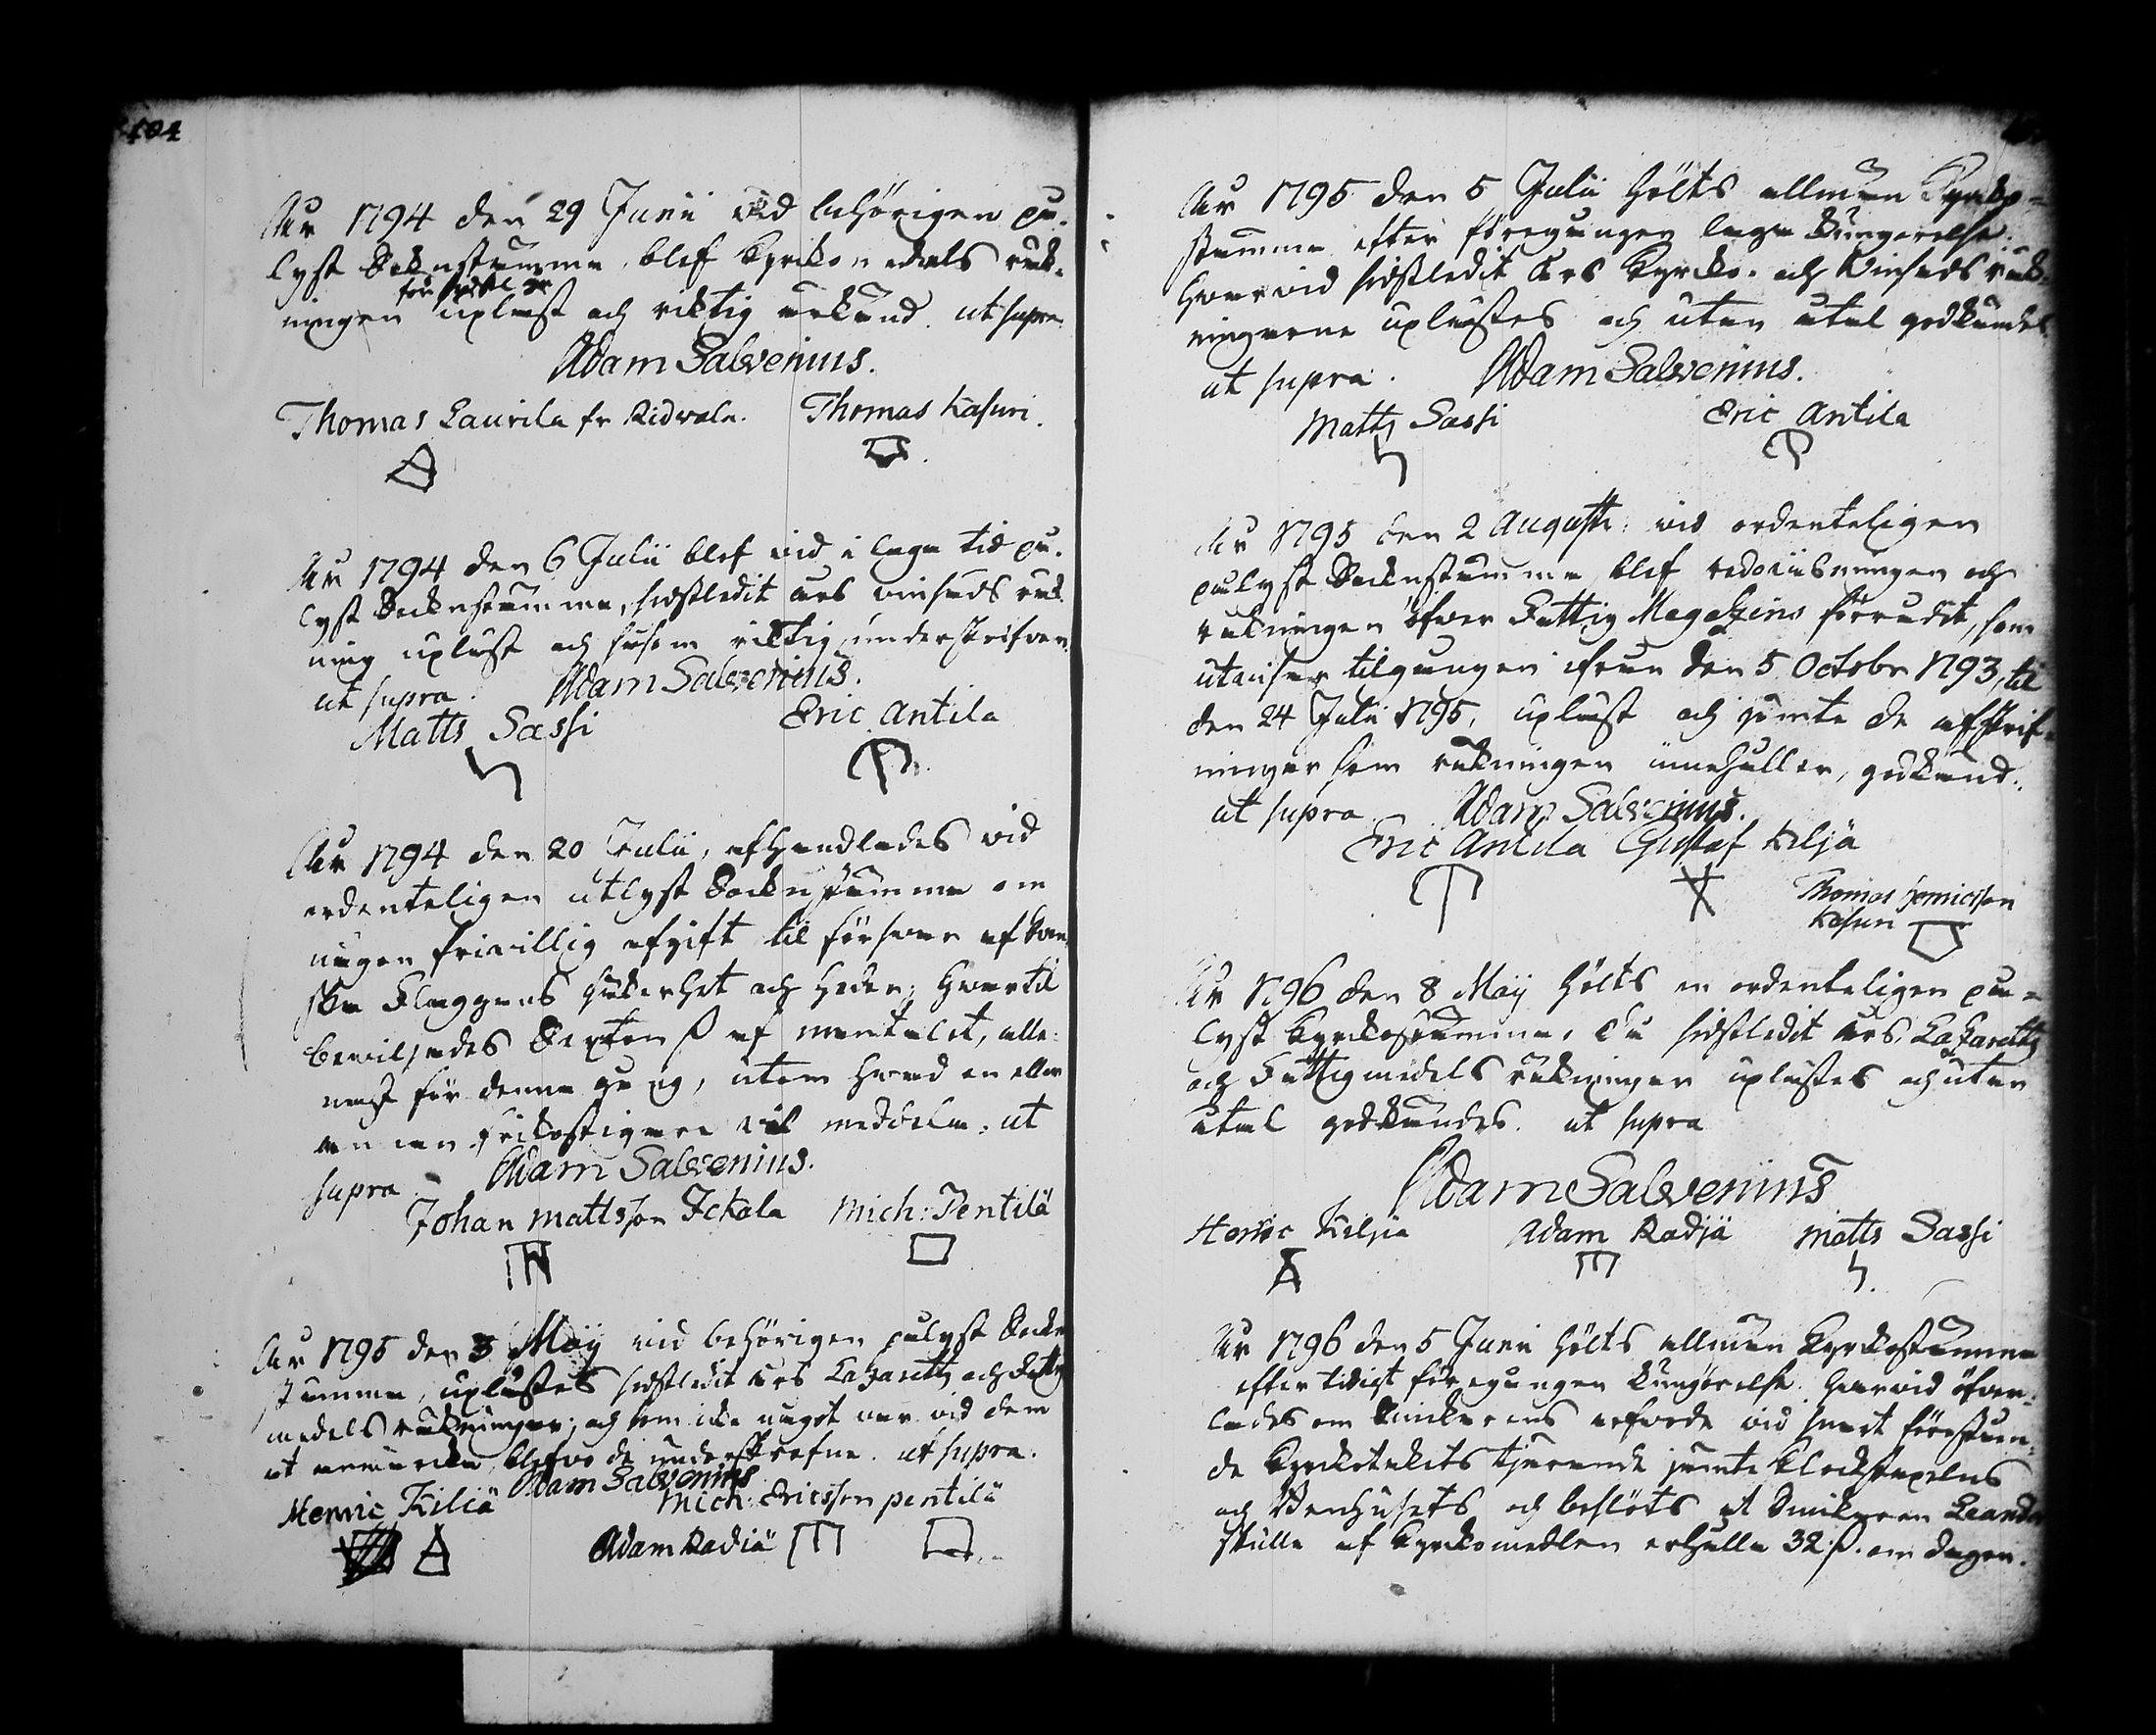 104
År 1794 den 29 Junii vid behörigen på-
lyst Sockenstämma, blef Kyrkomedels räk-
ningen
för sidstl. år
upläst och riktig erkänd. ut supra.
Adam Salvenius.
Thomas Laurila fr Ridvala. Thomas Kasuri.
År 1794 den 6 Julii blef vid i laga tid på-
lyst Sockenstämma, sidstledit års vinsäds räk-
ning upläst och såsom riktig underskrifven.
ut supra. Adam Salvenius.
Matts Sassi Eric Antila
År 1794 den 20 Julii, afhandlades vid
ordenteligen utlyst Sockenstämma om
någon frivillig afgift til försvar af Sven-
ska Flaggans säkerhet och heder; hvartil
beviljades Sexton ß af mantalet, alle-
nast för denna gång, utom hvad en eller
annan frikostigare vil meddela. ut
supra. Adam Salvenius.
Johan Mattsson Ickala Mich: Pentilä
År 1795 den 3 Maij vid behörigen pålyst Socken
stämma, uplästes sidstledit års Lazaretts och Fattig
medels räkningar; och som icke något var vid dem
at anmärka, blefvo de underskrefne. ut supra.
Adam Salvenius
Henric Kiliä Mich: Ericsson pentilä
Adam Radiä
År 1795 den 5 Julii hölts allmän Kyrko-
stämma efter föregången laga kungörelse:
hvarvid sidstledit års Kyrko- och Vinsäds räk-
ningarne uplästes och utan åtal godkändes.
ut supra. Adam Salvenius.
Matts Sassi Eric Antila
År 1795 den 2 Augusti: vid ordenteligen
pålyst Sockenstämma blef redovisningen och
räkningen öfver Fattig Magazins förrådet, som
utvisar tilgången ifrån den 5 Octobr 1793, til
den 24 Julii 1795, upläst och jämte de afskrif-
ningar som räkningen innehåller, godkänd.
ut supra Adam Salvenius.
Eric Antila Gustaf Kiljä
Thomas Henricsson
Kasuri
År 1796 den 8 Maij hölts en ordenteligen på-
lyst Kyrkostämma. Då sidstledit års Lazaretts
och Fattigmedels räkningar uplästes och utan
åtal godkändes. ut supra
Adam Salvenius
Henric Kiljä Adam Radjä Matts Sassi
År 1796 den 5 Junii hölts allmän Kyrkostämma
efter tidigt föregången kungörelse. hvarvid öfver-
lades om Snickarens arfvode vid snart förestån-
de Kyrkotakets tjärande jämte Klockstapelns
och Benhusets och beslöts at Snickaren Leander
skulle af Kyrkomedlen erhålla 32 ß. om dagen.